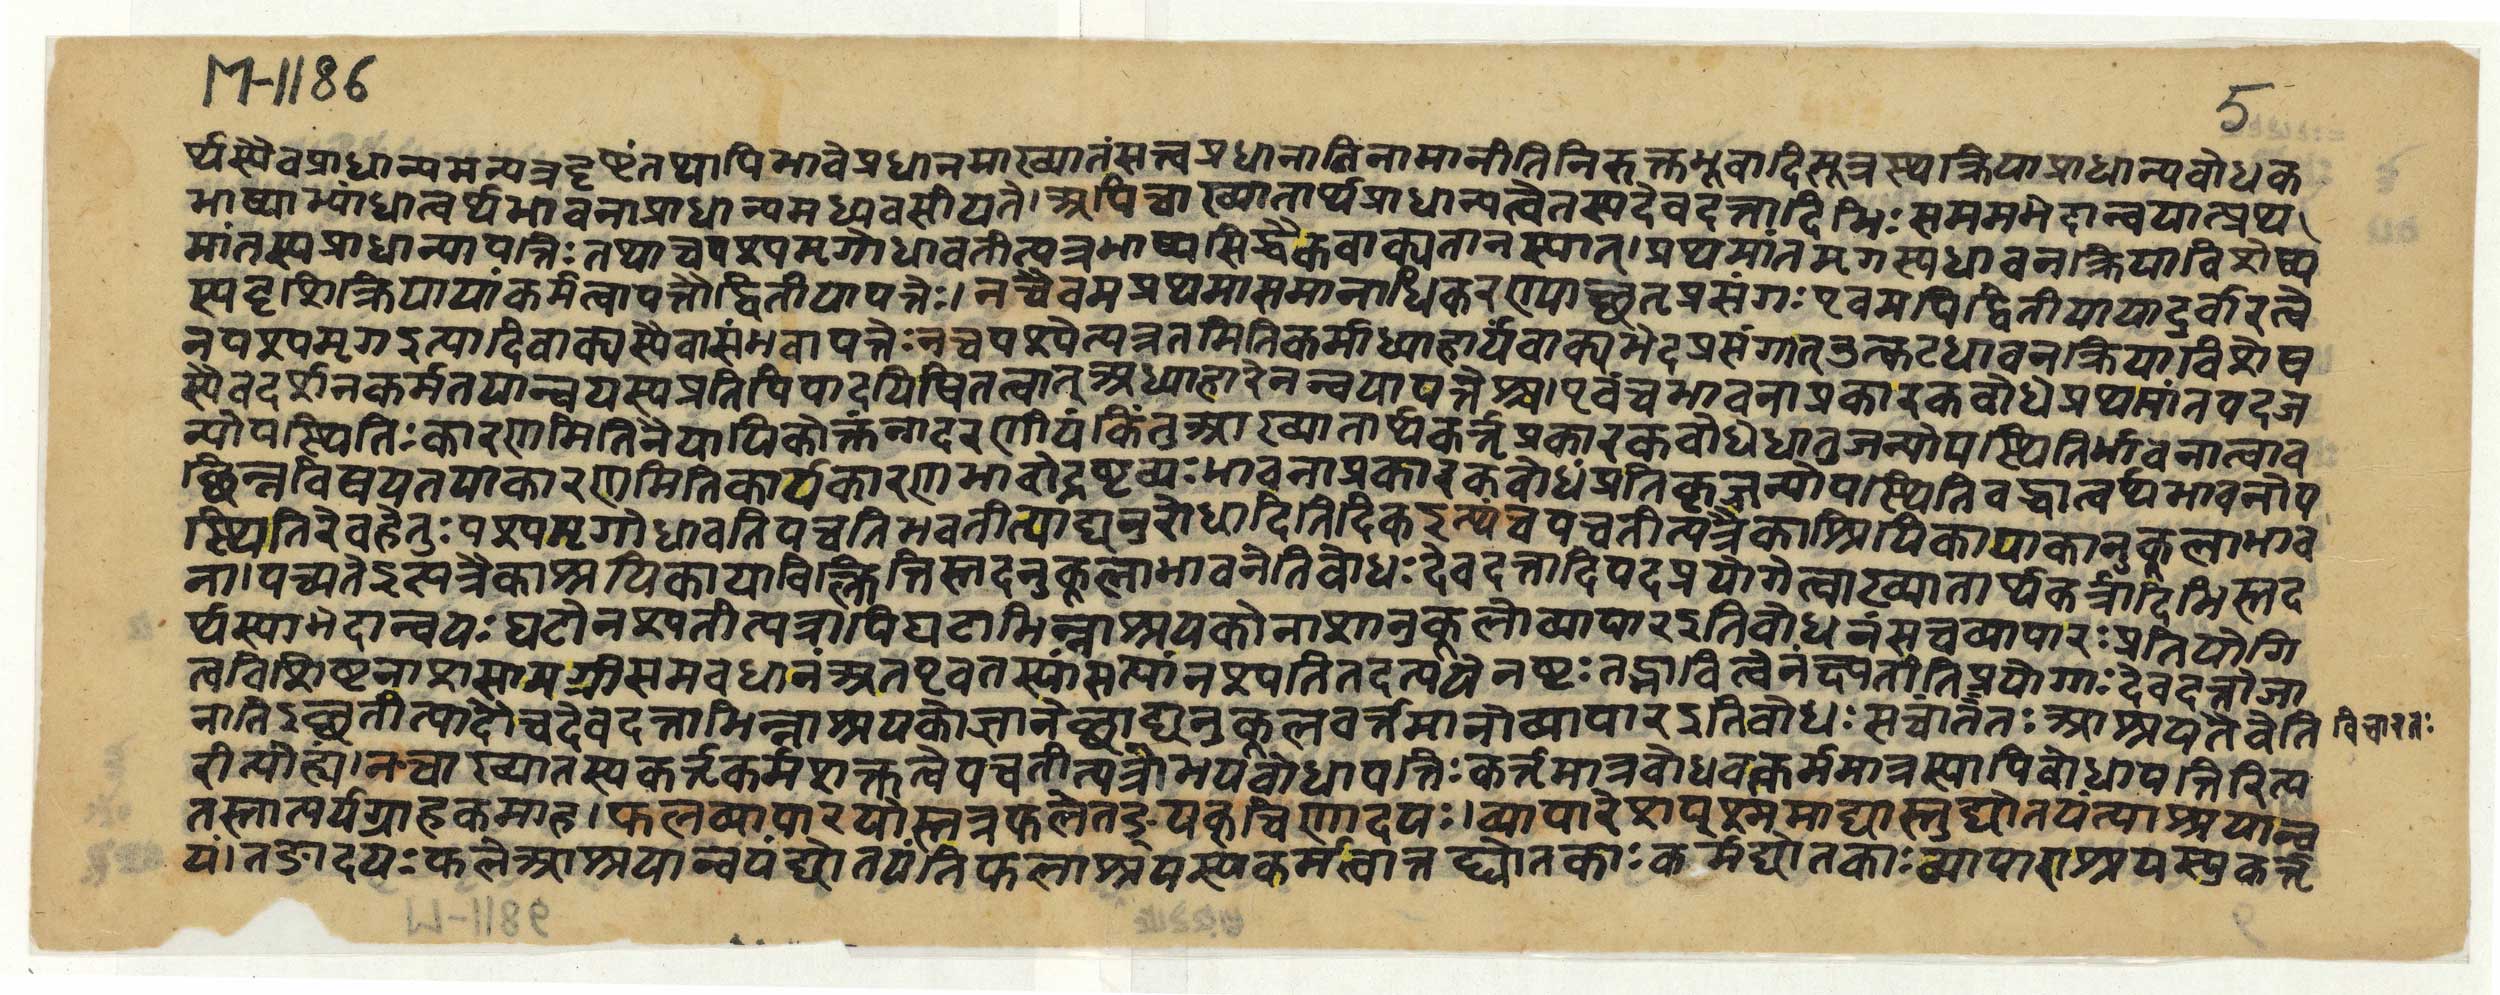 M-1186
5
र्थस्यैवप्राधान्यमन्यत्रदृष्टंतथापिभावेप्रधानमाख्यातंसत्त्वप्रधानानिनामानीतिनिरुक्तभूवादिसूत्रस्थक्रियाप्राधान्यबोधक
भाष्याभ्यांधात्वर्थभावनाप्राधान्यमध्यवसीयते।अपिचाख्यातार्थप्राधान्यत्वेतस्यदेवदत्तादिभिःसममभेदान्वयात्प्रथ
मांतस्यप्राधान्यापत्तिःतथाचपश्यमृगोधावतीत्यत्रभाष्यसिद्धैकवाक्यतानस्यात्।प्रथमांतमृगस्यधावनक्रियाविशेष्य
स्यदृशिक्रियायांकर्मत्वापत्तौद्वितीयापत्तेः।नचैवमप्रथमासमानाधिकरण्याच्छतृप्रसंगःएवमपिद्वितीयायादुर्वारत्वे
नपश्यमृगइत्यादिवाक्यस्यैवासंभवापत्तेःनचपश्येत्यत्रतमितिकर्माध्याहार्यंवाक्यभेदप्रसंगात्उत्कटधावनक्रियाविशेष
स्यैवदर्शनकर्मतयान्वयस्यप्रतिपिपादयिषितत्वात्अध्याहारेनन्वयापत्तेश्च।एवंचभावनाप्रकारकबोधेप्रथमांतपदज
न्योपस्थितिःकारणमितिनैयायिकोक्तंनादरणीयंकिंतुआख्यातार्थकर्तृप्रकारकबोधेधातुजन्योपस्थितिर्भावनात्वाव
च्छिन्नविषयतयाकारणमितिकार्यकारणभावोद्रष्टव्यःभावनाप्रकारकबोधंप्रतिकृज्जन्योपस्थितिवद्धात्वर्थभावनोप
स्थितिरेवहेतुःपश्यमृगोधावतिपचतिभवतीत्याद्यनुरोधादितिदिक्इत्थंचपचतीत्यत्रैकाश्रयिकापाकानुकूलाभाव
ना।पच्यतेइत्यत्रैकाश्रयिकायाविक्लित्तिस्तदनुकूलाभावनेतिबोधःदेवदत्तादिपदप्रयोगेत्वाख्यातार्थकर्त्रादिभिस्तद
र्थस्याभेदान्वयःघटोनश्यतीत्यत्रापिघटाभिन्नाश्रयकोनाशानुकूलोव्यापारइतिबोधनंसचव्यापारःप्रतियोगि
त्वविशिष्टनाशसामग्रीसमवधानंअतएवतस्यांसत्यांनश्यतितदत्ययेनष्टःतद्भावित्वेनंक्ष्यतीतिप्रयोगाःदेवदत्तोजा
नातिइच्छतीत्यादौचदेवदत्ताभिन्नाश्रयकोज्ञानेच्छाद्यनुकूलवर्त्तमानोव्यापारइतिबोधःसचांततःआश्रयतैवेति
विचारतः
रीत्योह्यं।नचाख्यातस्यकर्तृकर्मशक्तत्वेपचतीत्यत्रोभयबोधापत्तिःकर्तृमात्रबोधवत्कर्ममात्रस्यापिबोधापत्तिरित्य
तस्तात्पर्यग्राहकमाह।फलव्यापारयोस्तत्रफलेतङ्यक्चिणादयः।व्यापारेशप्श्नमाद्यास्तुद्योतयंत्याश्रयान्व
यं।तङादयःफलेआश्रयान्वयंद्योतयंतिफलाश्रयस्यकर्मत्वात्तद्द्योतकाःकर्मद्योतकाःव्यापाराश्रयस्यकर्तृ